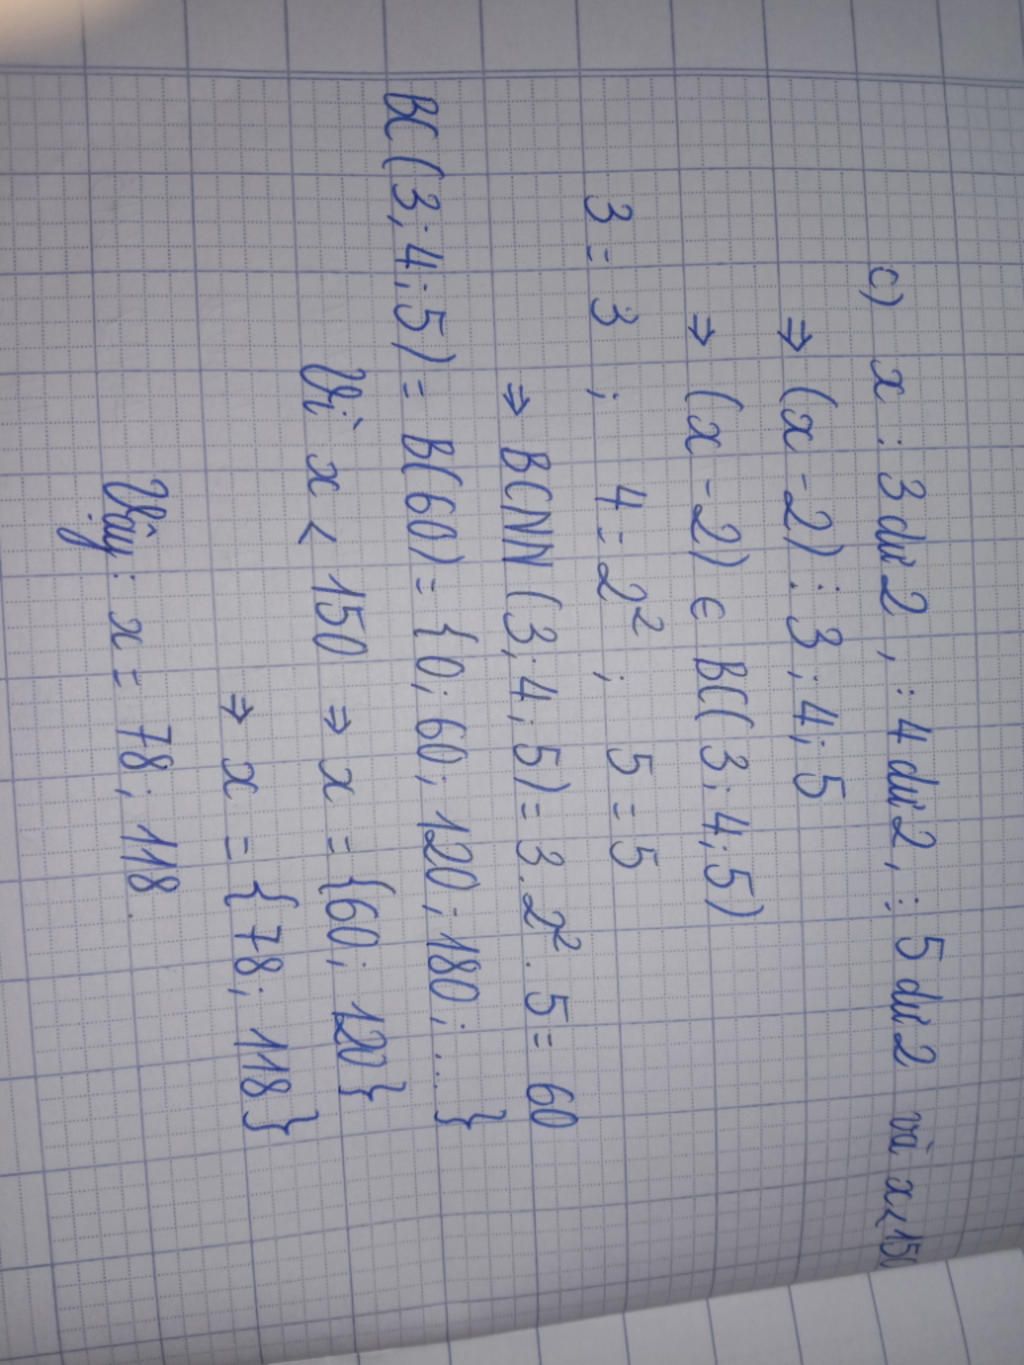 c) x : 3 dư 2 , : 4 dư 2 , : 5 dư 2 và x < 150
⇒ (x - 2) ⋮ 3 ; 4 ; 5
⇒ (x - 2) ∈ BC( 3 ; 4 ; 5)
3 = 3 ; 4 = 2² ; 5 = 5
⇒ BCNN ( 3 ; 4 ; 5) = 3 . 2² . 5 = 60
BC( 3 ; 4 ; 5) = B(60) = { 0 ; 60 ; 120 ; 180 ; ... }
Vì x < 150 ⇒ x = {60 ; 120}
⇒ x = { 78 ; 118 }
Vậy : x = 78 ; 118 .